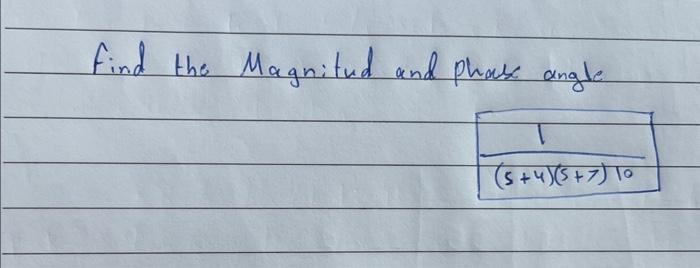 find the Magnitud and phase angle
1
(s+4)(s+7) 10